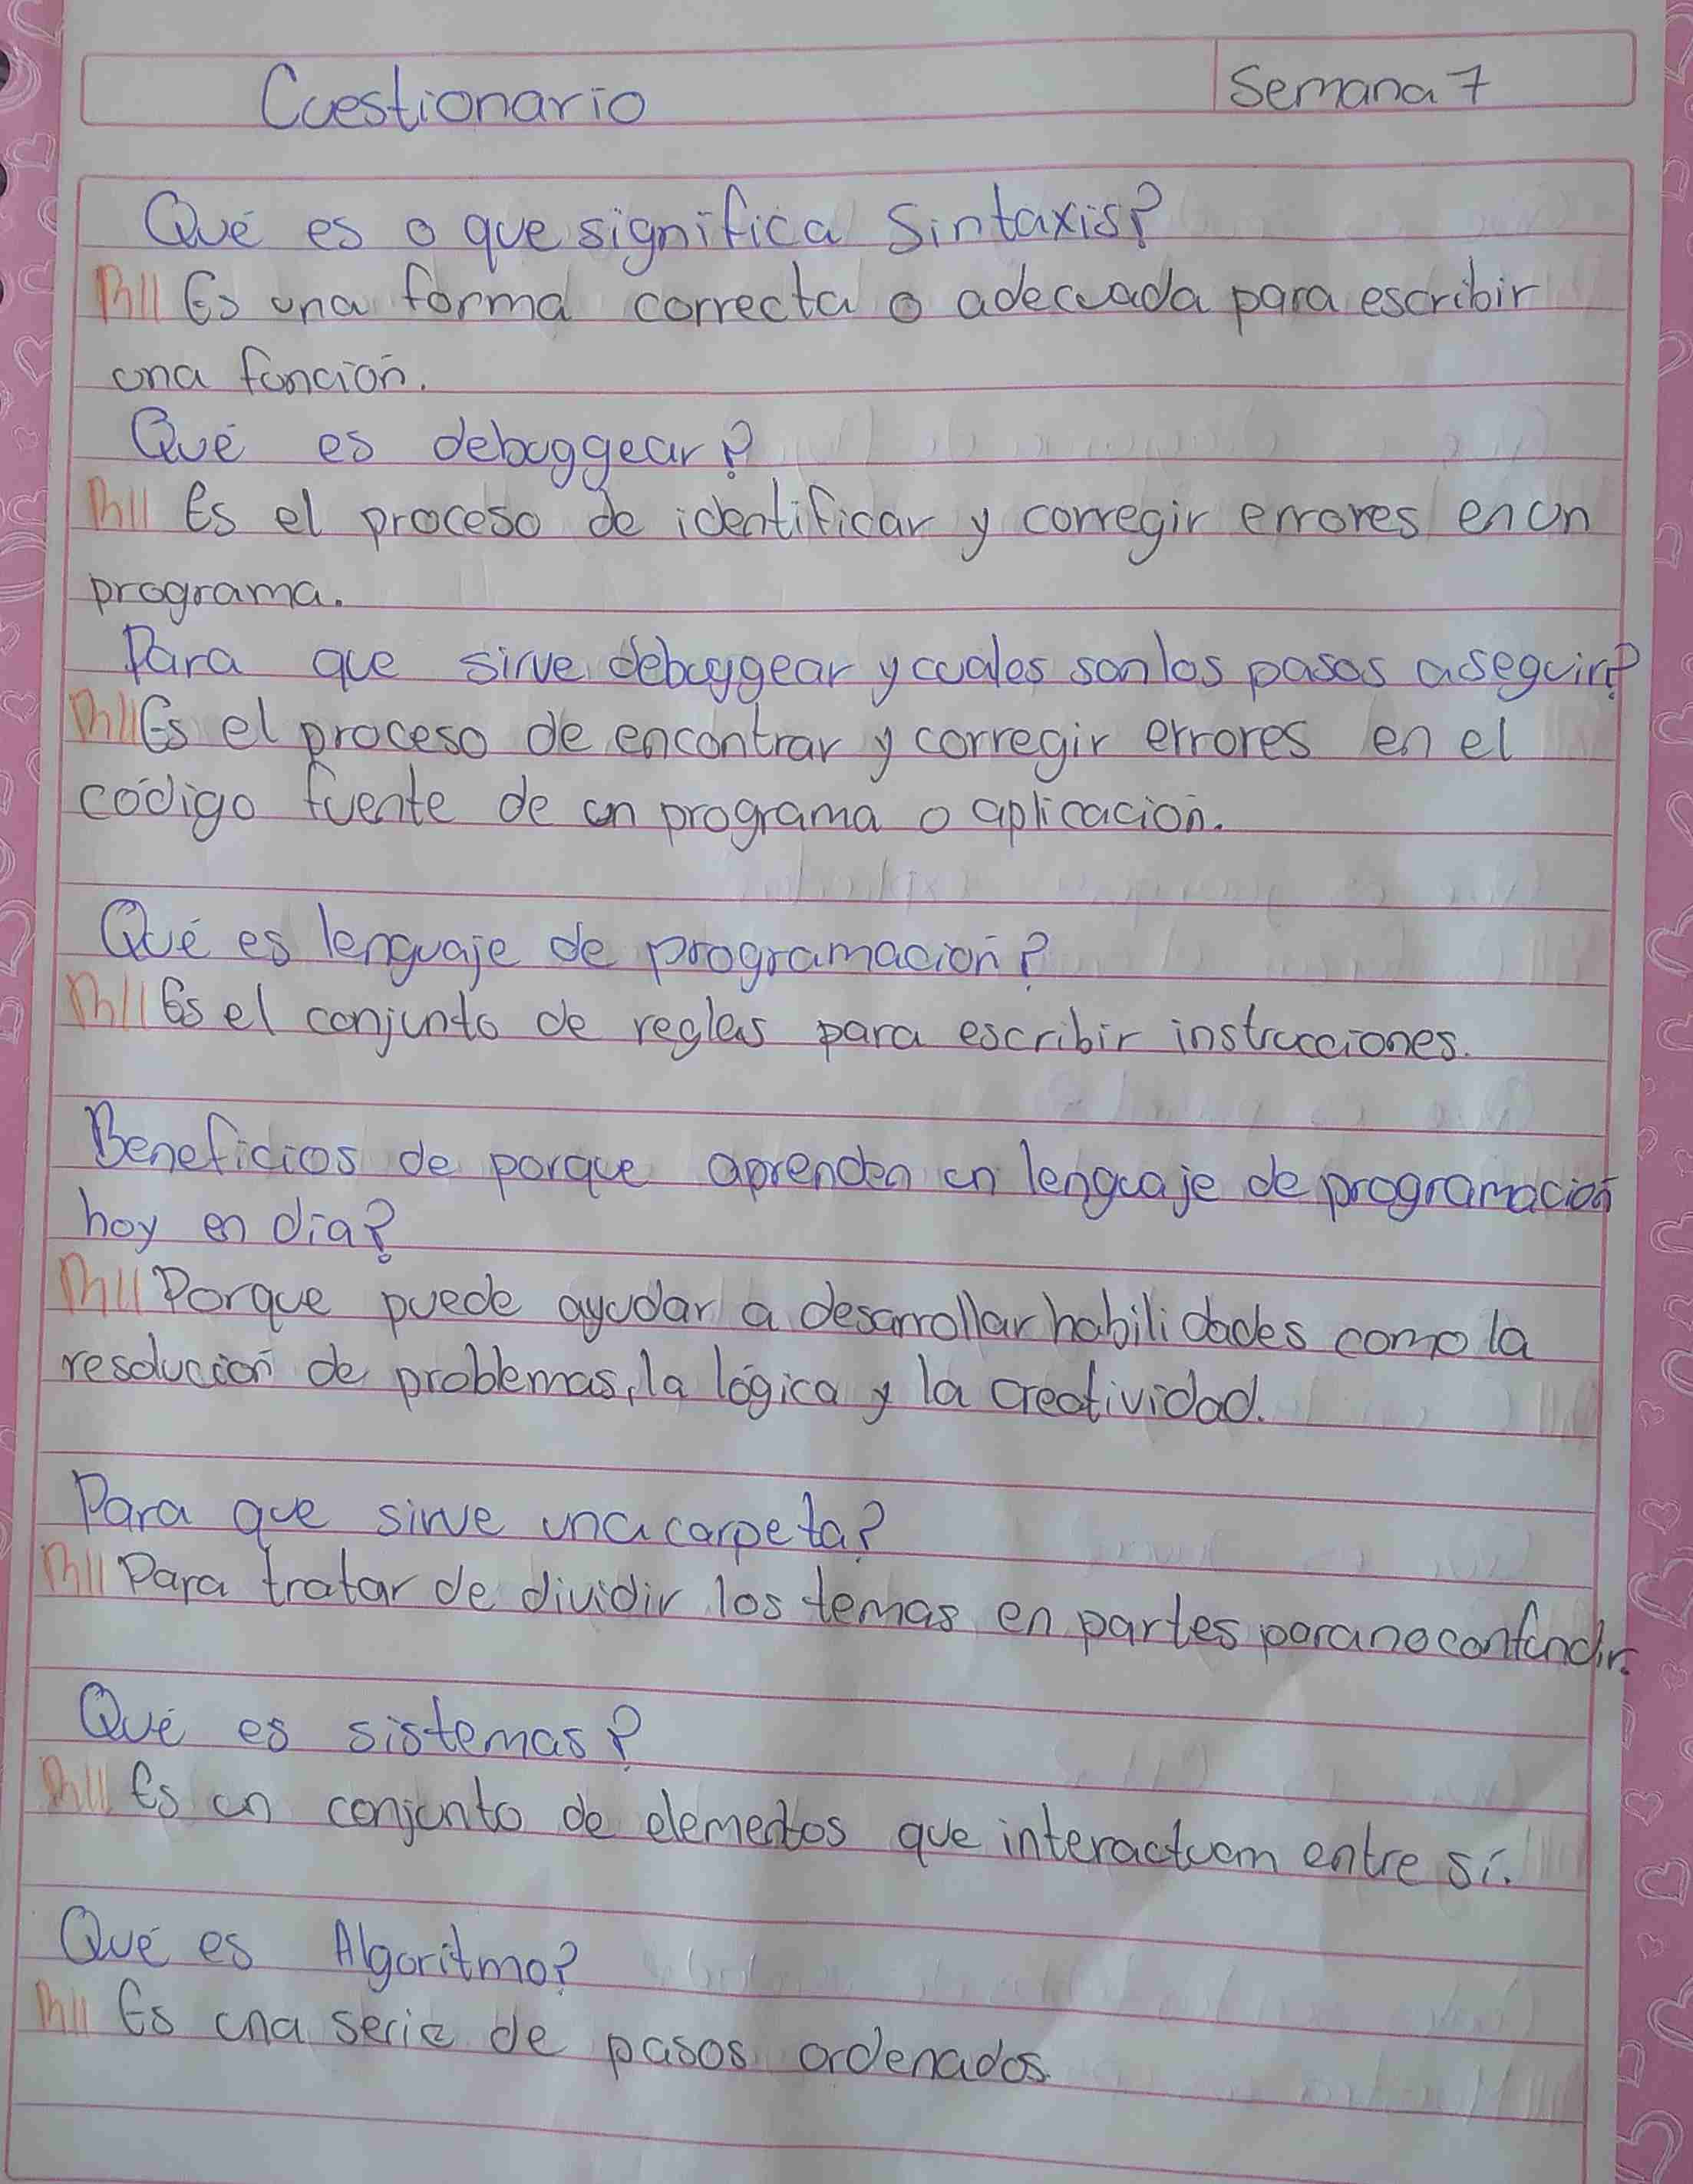 Cuestionario
Semana 7
Qué es o que significa Sintaxis?
R// Es una forma correcta o adecuada para escribir
una función.
Qué es debuggear?
R// Es el proceso de identificar y corregir errores en un
programa.
Para que sirve debuggear y cuales son los pasos a seguir?
R// Es el proceso de encontrar y corregir errores en el
código fuente de un programa o aplicación.
Qué es lenguaje de programación?
R// Es el conjunto de reglas para escribir instrucciones.
Beneficios de porque aprenden un lenguaje de programación
hoy en día?
R// Porque puede ayudar a desarrollar habilidades como la
resolución de problemas, la lógica y la creatividad.
Para que sirve una carpeta?
R// Para tratar de dividir los temas en partes para no confundir.
Qué es sistemas?
R// Es un conjunto de elementos que interactuam entre sí.
Qué es Algoritmo?
R// Es una serie de pasos ordenados